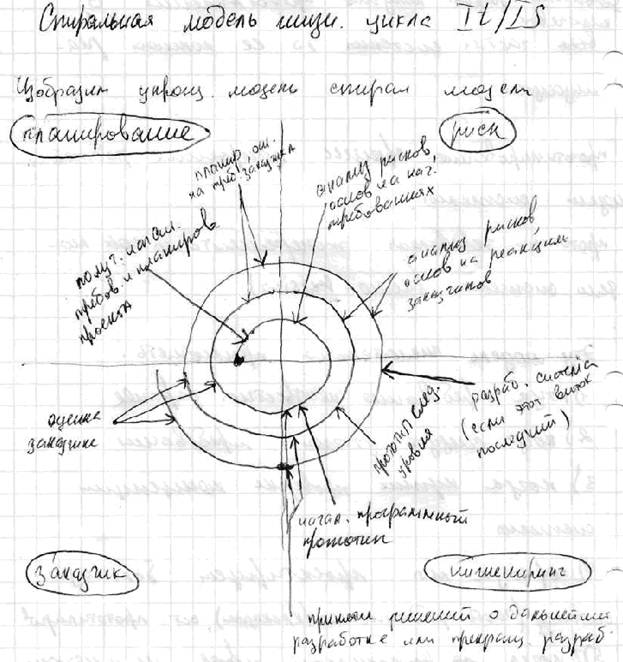 Спиральная модель жизн. цикла It/IS
Изобразим упрощ. модель спирал модели
планирование
риск
планир. осн.
на треб. заказчика
анализ рисков,
основ на нач.
требованиях
получ. начал.
требов. и планиров
проекта
анализ рисков
основ на реакции
заказчиков
оценка
заказчика
прототип след.
уровня
разраб. система
(если этот виток
последний)
начал. программный
прототип
заказчик
инженеринг
принят решений о дальнейшей
разработке или прекращ разраб.